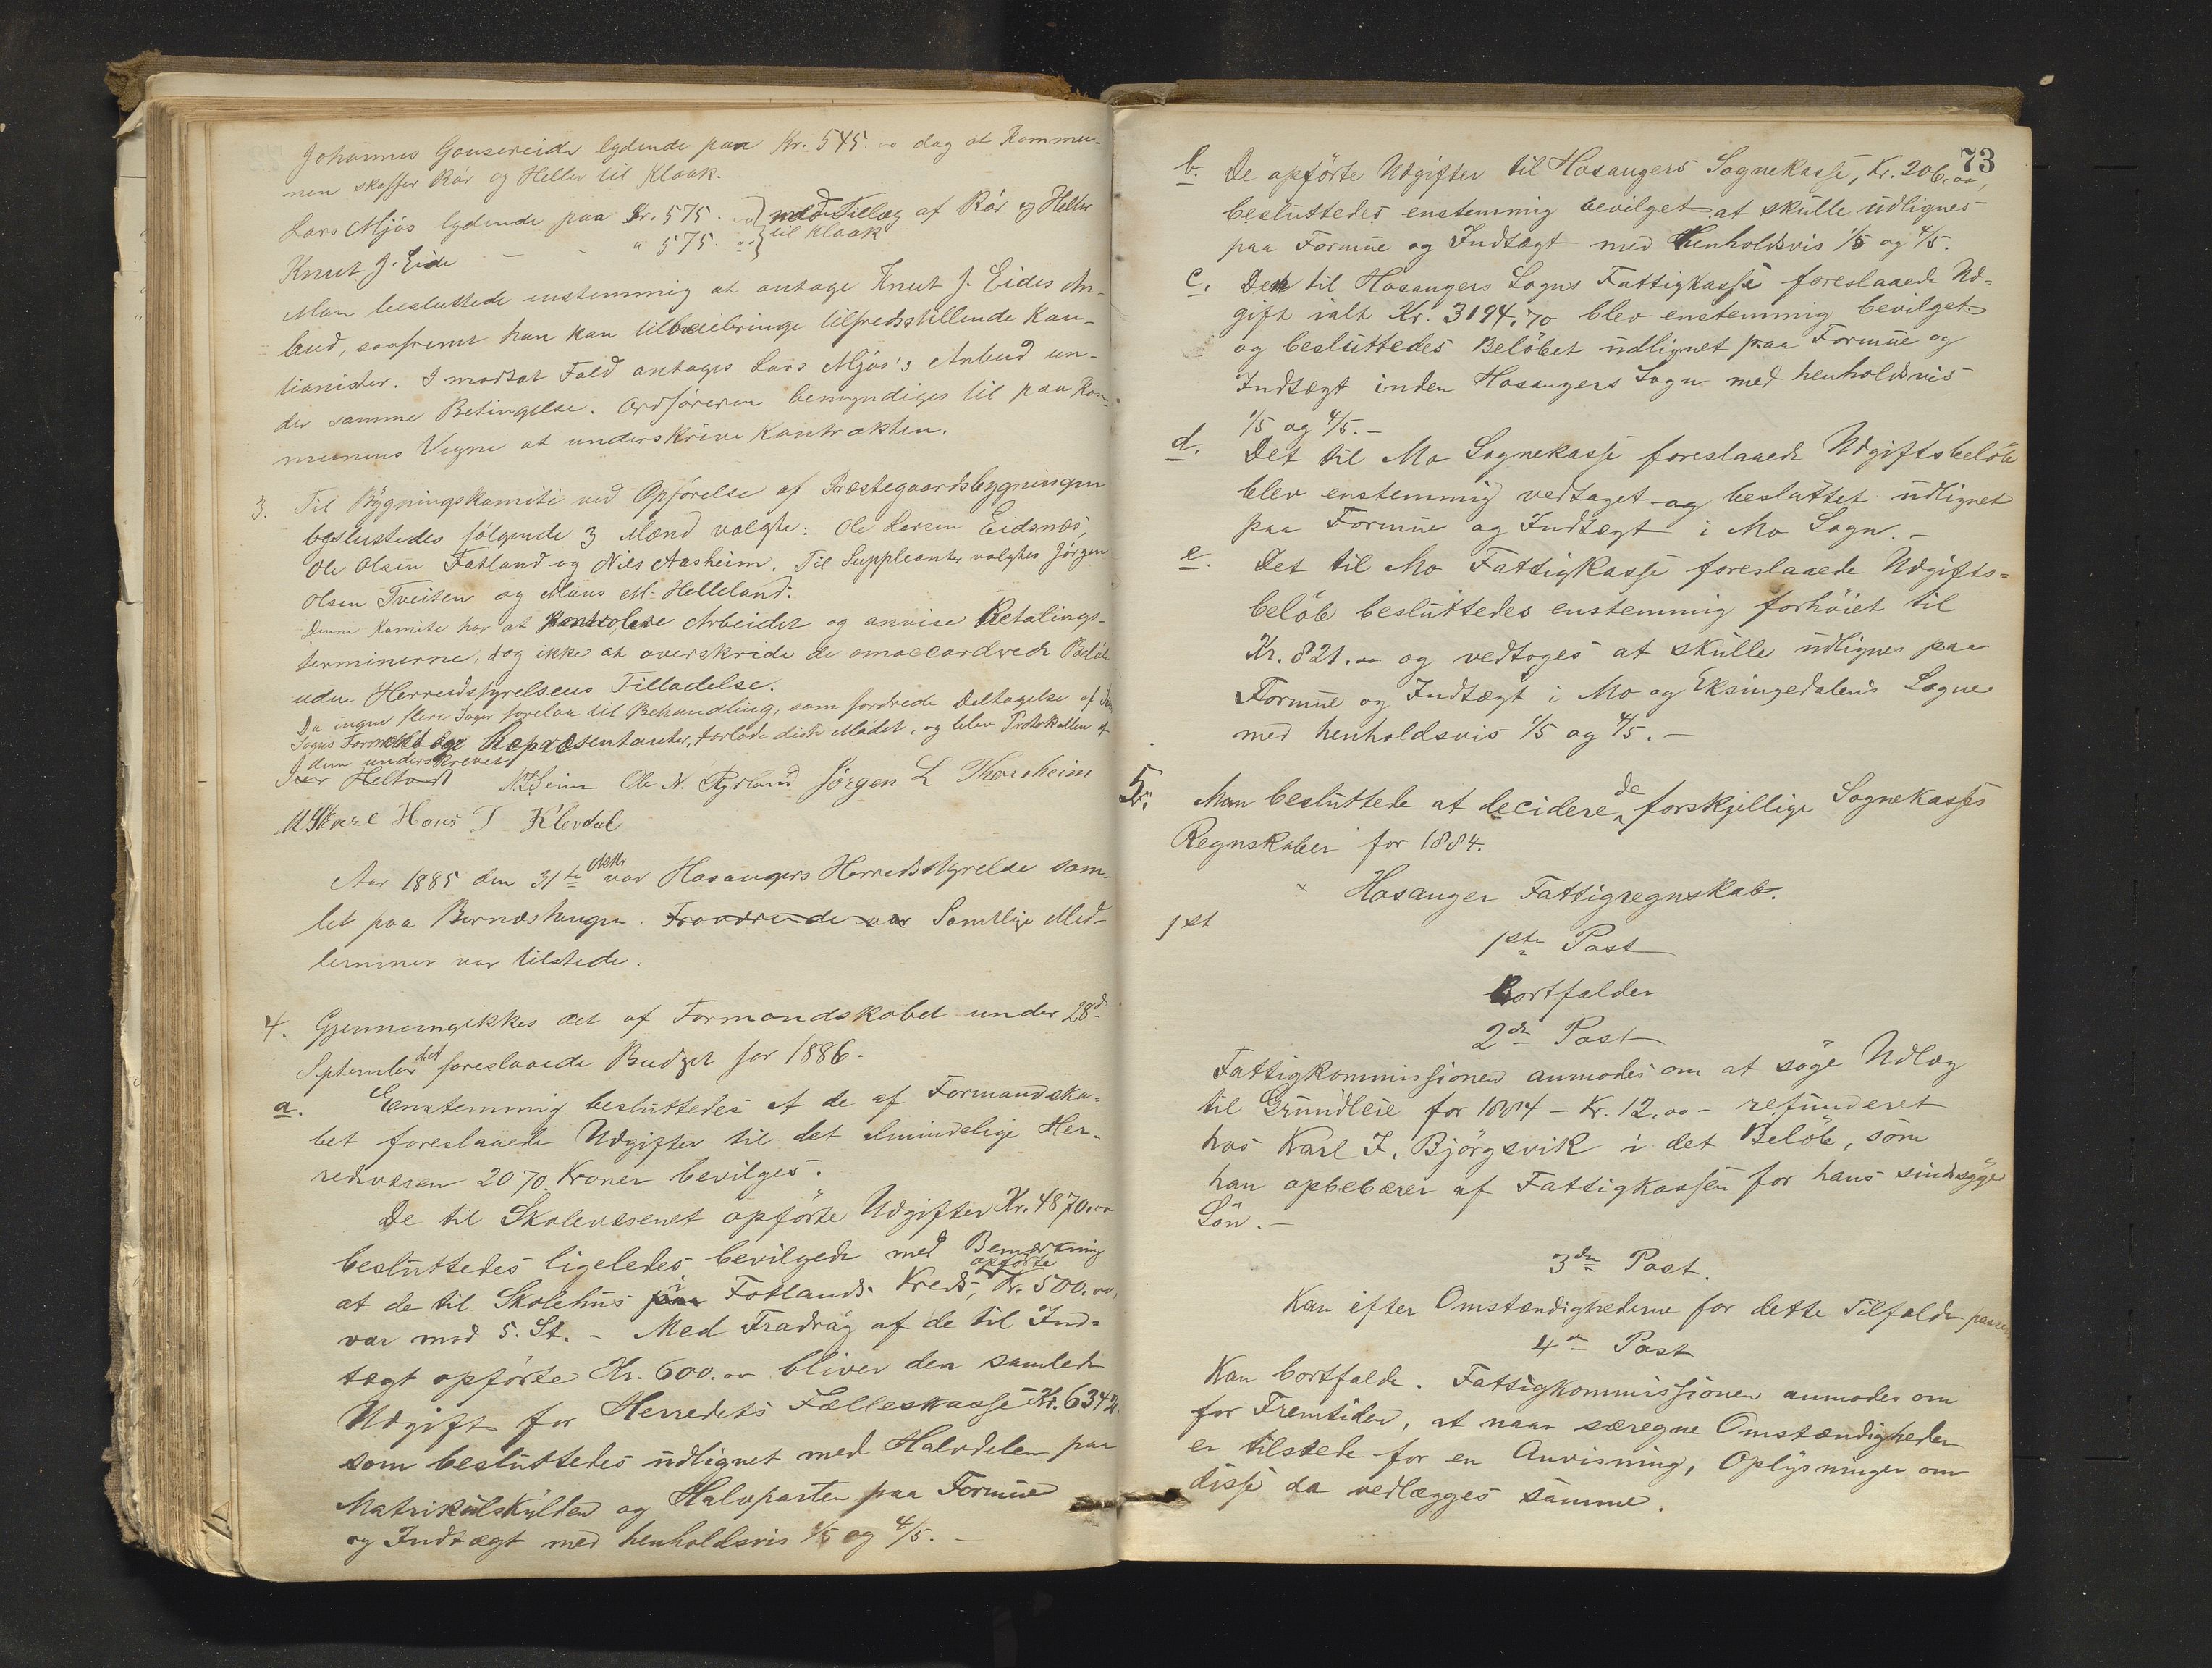 Johannes Gousereide lydende paa Kr. 545.00 dog at Kommu-
nen skaffer Rör og Heller til Kloak.
Lars Mjös lydende paa Kr. 575. 00 } med Tillæg af Rör og Heller
Knut J. Eide - - " 575. 00 } til Kloak
Man besluttede enstemmig at antage Knut J. Eides An-
bud, saafremt han kan tilveiebringe tilfredsstillende Kau-
tionister. I modsat Fald antages Lars Mjös's Anbud un-
der samme Betingelse. Ordföreren bemyndiges til paa Kom-
munens Vegne at underskrive Kontrakten.
3. Til Bygningskomite ved Opförelse af Præstegaardsbygningen
besluttedes fölgende 3 Mænd valgte: Ole Larsen Eidsnæs,
Ole Olsen Fatland og Nils Aasheim. Til Suppleanter valgtes Jörgen
Olsen Tveiten og Mons M. Helleland.
Denne Komite har at kontrolere Arbeidet og anvise Betalings-
terminerne, dog ikke at overskride de omaccorderede Belöb
uden Herredsstyrelsens Tilladelse.
Da ingen flere Sager forelaa til Behandling, som fordrede Deltagelse af
Sogns Formænd og Repræsentanter, forlode disse Mödet, og blev Protokollen af
dem underskrevet
Iver Helland N. Seim Ole N. Rysland Jörgen L Thorsheim
Hans T Klevdal
Aar 1885 den 31te Oktbr var Hosangers Herredsstyrelse sam-
let paa Bernæstangen. Fraværende var Samtlige Med-
lemmer var tilstede.
4. Gjennemgikkes det af Formandskabet under 28de
September det foreslaaede Budget for 1886.
a. Eenstemmig besluttedes at de af Formandska-
bet foreslaaede Udgifter til det almindelige Her-
redsvæsen 2070. Kroner bevilges.
De til Skolevæsenet opförte Udgifter Kr. 4870.00
besluttedes ligeledes bevilgede med Bemærkning
at de til Skolehus paa i Fotlands Kreds, opförte Kr. 500.00,
var mod 5. St. - Med Fradrag af de til Ind-
tægt opförte Kr. 600.00 bliver den samlede
Udgift for Herredets Fælleskasse Kr. 6342.
som besluttedes udlignet med Halvdelen paa
Matrikulskylden og Halvparten paa Formue
og Indtægt med henholdsvis 1/5 og 4/5. -
73
b. De opförte Udgifter til Hosangers Sognekasse, Kr. 206.00,
besluttedes enstemmig bevilget at skulle udlignes
paa Formue og Indtægt med henholdsvis 1/5 og 4/5.
c. Den til Hosangers Sogns Fattigkasse foreslaaede Ud-
gift ialt Kr. 3194,70 blev enstemmig bevilget
og besluttedes Belöbet udlignet paa Formue og
Indtægt inden Hosangers Sogn med henholdsvis
1/5 og 4/5. -
d. Det til Mo Sognekasse foreslaaede Udgiftsbelöb
blev enstemmig vedtaget og besluttet udlignet
paa Formue og Indtægt i Mo Sogn. -
e. Det til Mo Fattigkasse foreslaaede Udgifts-
belöb besluttedes enstemmig forhöiet til
Kr. 821.00 og vedtoges at skulle udlignes paa
Formue og Indtægt i Mo og Eksingedalens Sogne
med henholdsvis 1/5 og 4/5. -
5. Man besluttede at decidere de forskjellige Sognekasses
Regnskaber for 1884.
x Hosanger Fattigregnskab.
1st
1ste Post
Bortfalder
2den Post
Fattigkommissionen anmodes om at söge Udlæg
til Grundleie for 1884 - Kr. 12.00 - refunderet
hos Karl J. Björgsvik i det Belöb, som
han opbebærer af Fattigkassen for hans sindssyge
Sön. -
3die Post.
Kan efter Omstændighederne for dette Tilfælde passere
4de Post
Kan bortfalde. Fattigkommissionen anmodes om
for Fremtiden, at naar særegne Omstændigheder
er tilstede for en Anvisning, Oplysninger om
disse da vedlægges samme.